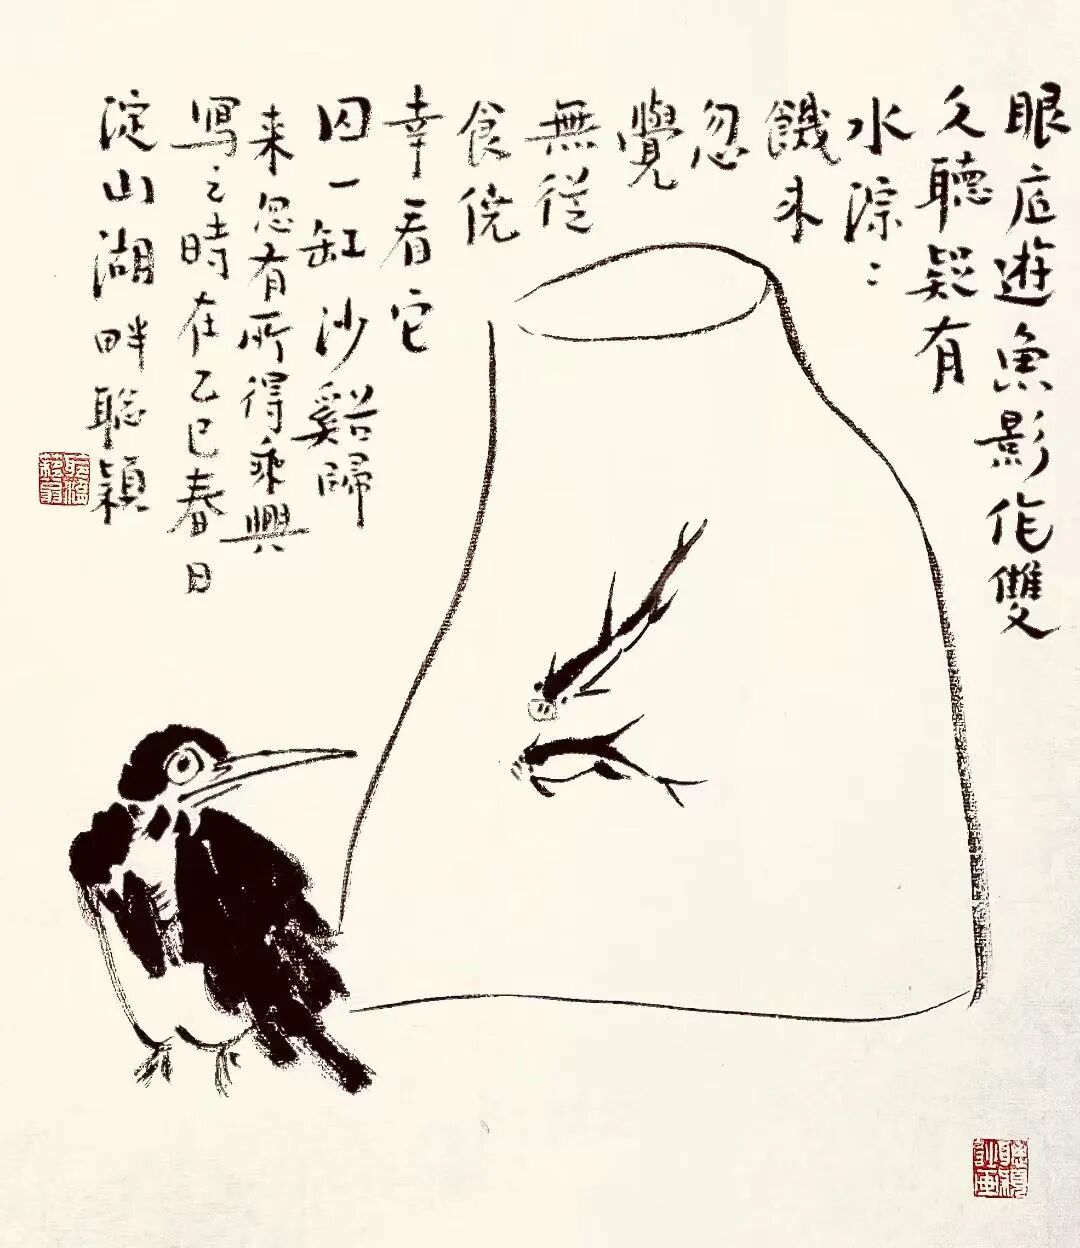 眼底遊魚影作雙
久聽疑有
水淙：
饑来
忽
覺
無從
食侥
幸看它
囚一缸沙谿歸
来忽有所得乘興
寫之時在乙巳春日
淀山湖畔聰穎